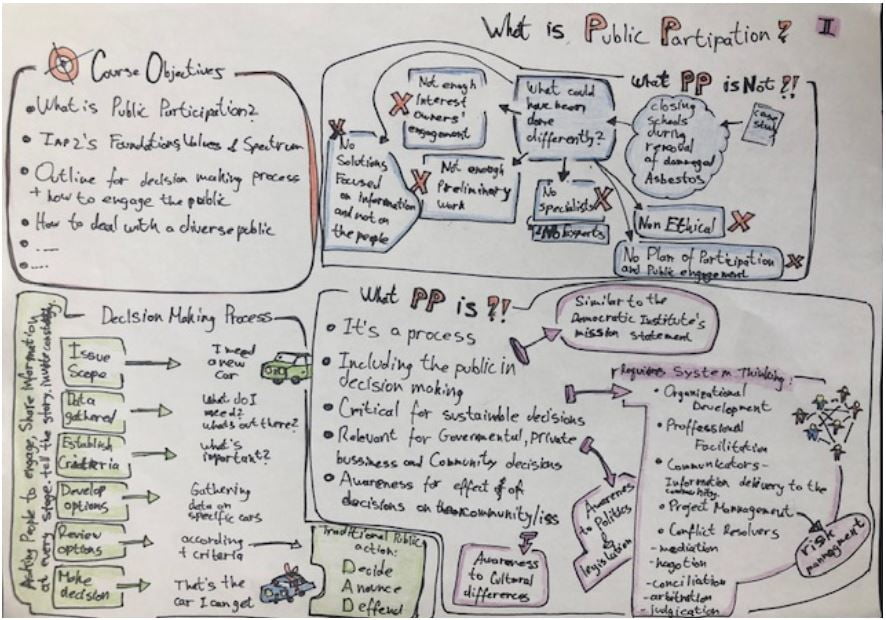 What is Public Partipation? II
Course Objectives
What is Public Participation?
IAP2's Foundations, Values & Spectrum
Outline for decision making process
+ how to engage the public
How to deal with a diverse public
....
....
What PP is Not?!
case
study
closing
schools
during
removal
of damaged
Asbestos
What could
have been
done
differently?
Not enogh
Interest
owners'
engagement
No
Solutions
Focused
on information
and not on
the people
Not enough
Preliminary
work
No
specialists
No Experts
Non Ethical
No Plan of Participation
and Public engagement
Decision Making Process
People to engage, Share information
at every stage, tell the story, involve constantly
Issue
Scope
I need
a new
car
Data
gathered
What do I
need?
what's out there?
Establish
Criteria
what's
important?
Develop
options
Gathering
data on
specific cars
Review
options
according
+ criteria
Make
decision
That's the
car I can get
Traditional Public
action:
Decide
Anounce
Deffend
What PP is?!
It's a process
Including the public in
decision making
Critical for sustainable decisions
Relevant for Governmental, private
bussiness and Community decisions
Awareness for effect of
decisions on community/ies
Similar to the
Democratic Institute's
mission statement
Awareness
to Politics
&
legislation
Awareness
to Cultural
differences
Requires System Thinking:
Organizational
Development
Proffessional
Facilitation
Communicators-
Information delivery to the
community.
Project Management
Conflict Resolvers
-mediation
-negotion
-conciliation
-arbitration
-judgication
risk
managment